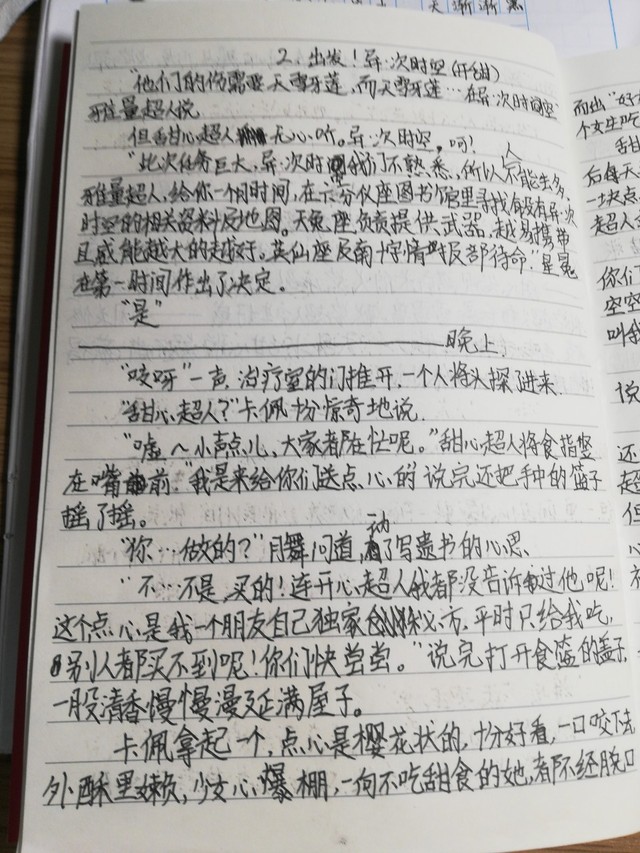 天渐渐黑
2.出发！异次时空(开甜)
“他们的伤需要天雪牙莲，而天雪牙莲…在异次时间空
雅量超人说
但甜心超人无心听。异次时空，呵！
“此次任务巨大，异次时我们不熟悉，所以人不能去多，
雅量超人，给你一个时间，在六分仪座图书馆里寻找有没有异次
时空的相关资料及地图。天兔座负责提供武器，越易携带
且威能越大的越好。英仙座及南十字情时反部待命”星冕
在第一时间作出了决定。
“是”
晚上，
“咬呀”一声，治疗室的门推开，一个人将头探了进来
“甜心超人？”卡佩十分惊奇地说．
“嘘～小声点儿，大家都在忙呢。”甜心超人将食指竖
在嘴前．“我是来给你们送点心的”说完还把手中的篮子
摇了摇。
“你…做的？”月舞问道，一衲有了写遗书的心思、
“不…不是，买的！连开心超人我都没告诉过他呢！
这个点心是我一个朋友自己独家秘方，平时只给我吃，
别人都买不到呢！你们快尝尝。”说完打开食篮的盖子，
一股清香慢慢漫延满屋子。
卡佩拿起一个，点心是樱花状的，十分好看，一口咬下去
外酥里嫩，少女心爆棚，一向不吃甜食的她，都不经脱口
而出“好
个女生吃
甜
后每天
一块点
超人
你们
空空
叫我
说
还
超
但
心